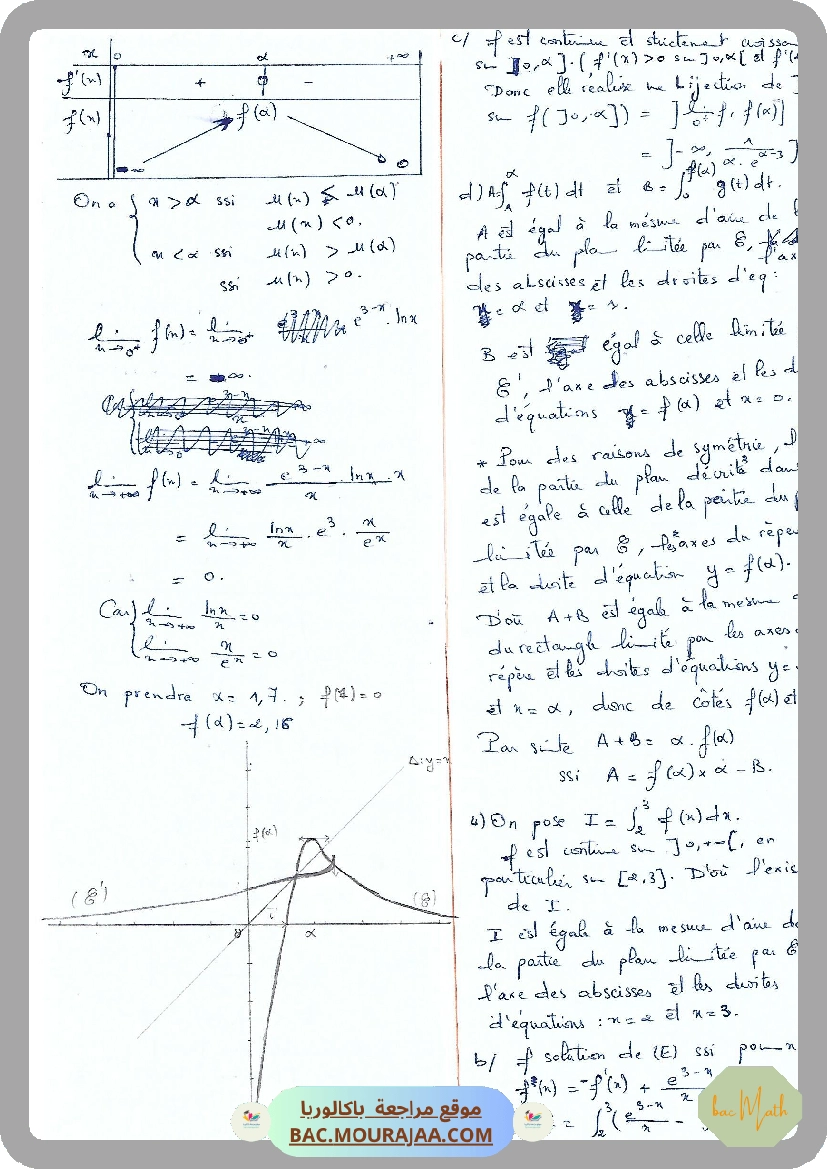 x 0 α +∞
f'(x) + 0 -
f(x) f(α)
-∞ 0
On a { x > α ssi u(x) < u(α)
u(x) < 0.
x < α ssi u(x) > u(α)
ssi u(x) > 0.
lim x→0⁺ f(x) = lim x→0⁺ e^(3-x) . ln x
= -∞.
lim x→+∞ f(x) = lim x→+∞ e^(3-x) . ln x . x / x
= lim x→+∞ ln x / x . e^3 . x / e^x
= 0.
Car { lim x→+∞ ln x / x = 0
lim x→+∞ x / e^x = 0
On prendre α = 1,7. ; f(1) = 0
f(α) = 2,16
Δ: y = x
f(α)
(C')
(C)
0 i α
c/ f est continue et strictement croissan
sur ]0,α]. ( f'(x) > 0 sur ]0,α[ et f'(
Donc elle réalise une bijection de ]
sur f( ]0,α]) = ] lim 0⁺ f, f(α)]
= ]-∞, 1 / α.e^(α-3) ]
d) A = ∫₁^α f(t) dt et B = ∫₀^f(α) g(t) dt.
A est égal à la mesure d'aire de l
partie du plan limitée par C, l'ax
des abscisses et les droites d'eq:
x = α et x = 1.
B est égal à celle limitée
C', l'axe des abscisses et les d
d'équations x = f(α) et x = 0.
* Pour des raisons de symétrie, l
de la partie du plan décrite dan
est égale à celle de la partie du p
limitée par C, les axes du repèr
et la droite d'équation y = f(α).
D'où A+B est égale à la mesure
du rectangle limité par les axes
repère et les droites d'équations y =
et x = α, donc de côtés f(α) et
Par suite A + B = α . f(α)
ssi A = f(α) × α - B.
4) On pose I = ∫₂³ f(x) dx.
f est continue sur ]0,+∞[, en
particulier sur [2,3]. D'où l'exis
de I.
I est égale à la mesure d'aire de
la partie du plan limitée par C
l'axe des abscisses et les droites
d'équations : x = 2 et x = 3.
b/ f solution de (E) ssi pour x
f(x) = -f'(x) + e^(3-x) / x
= ∫₂³ ( e^(3-x) / x -
موقع مراجعة باكالوريا
BAC.MOURAJAA.COM
bac Math